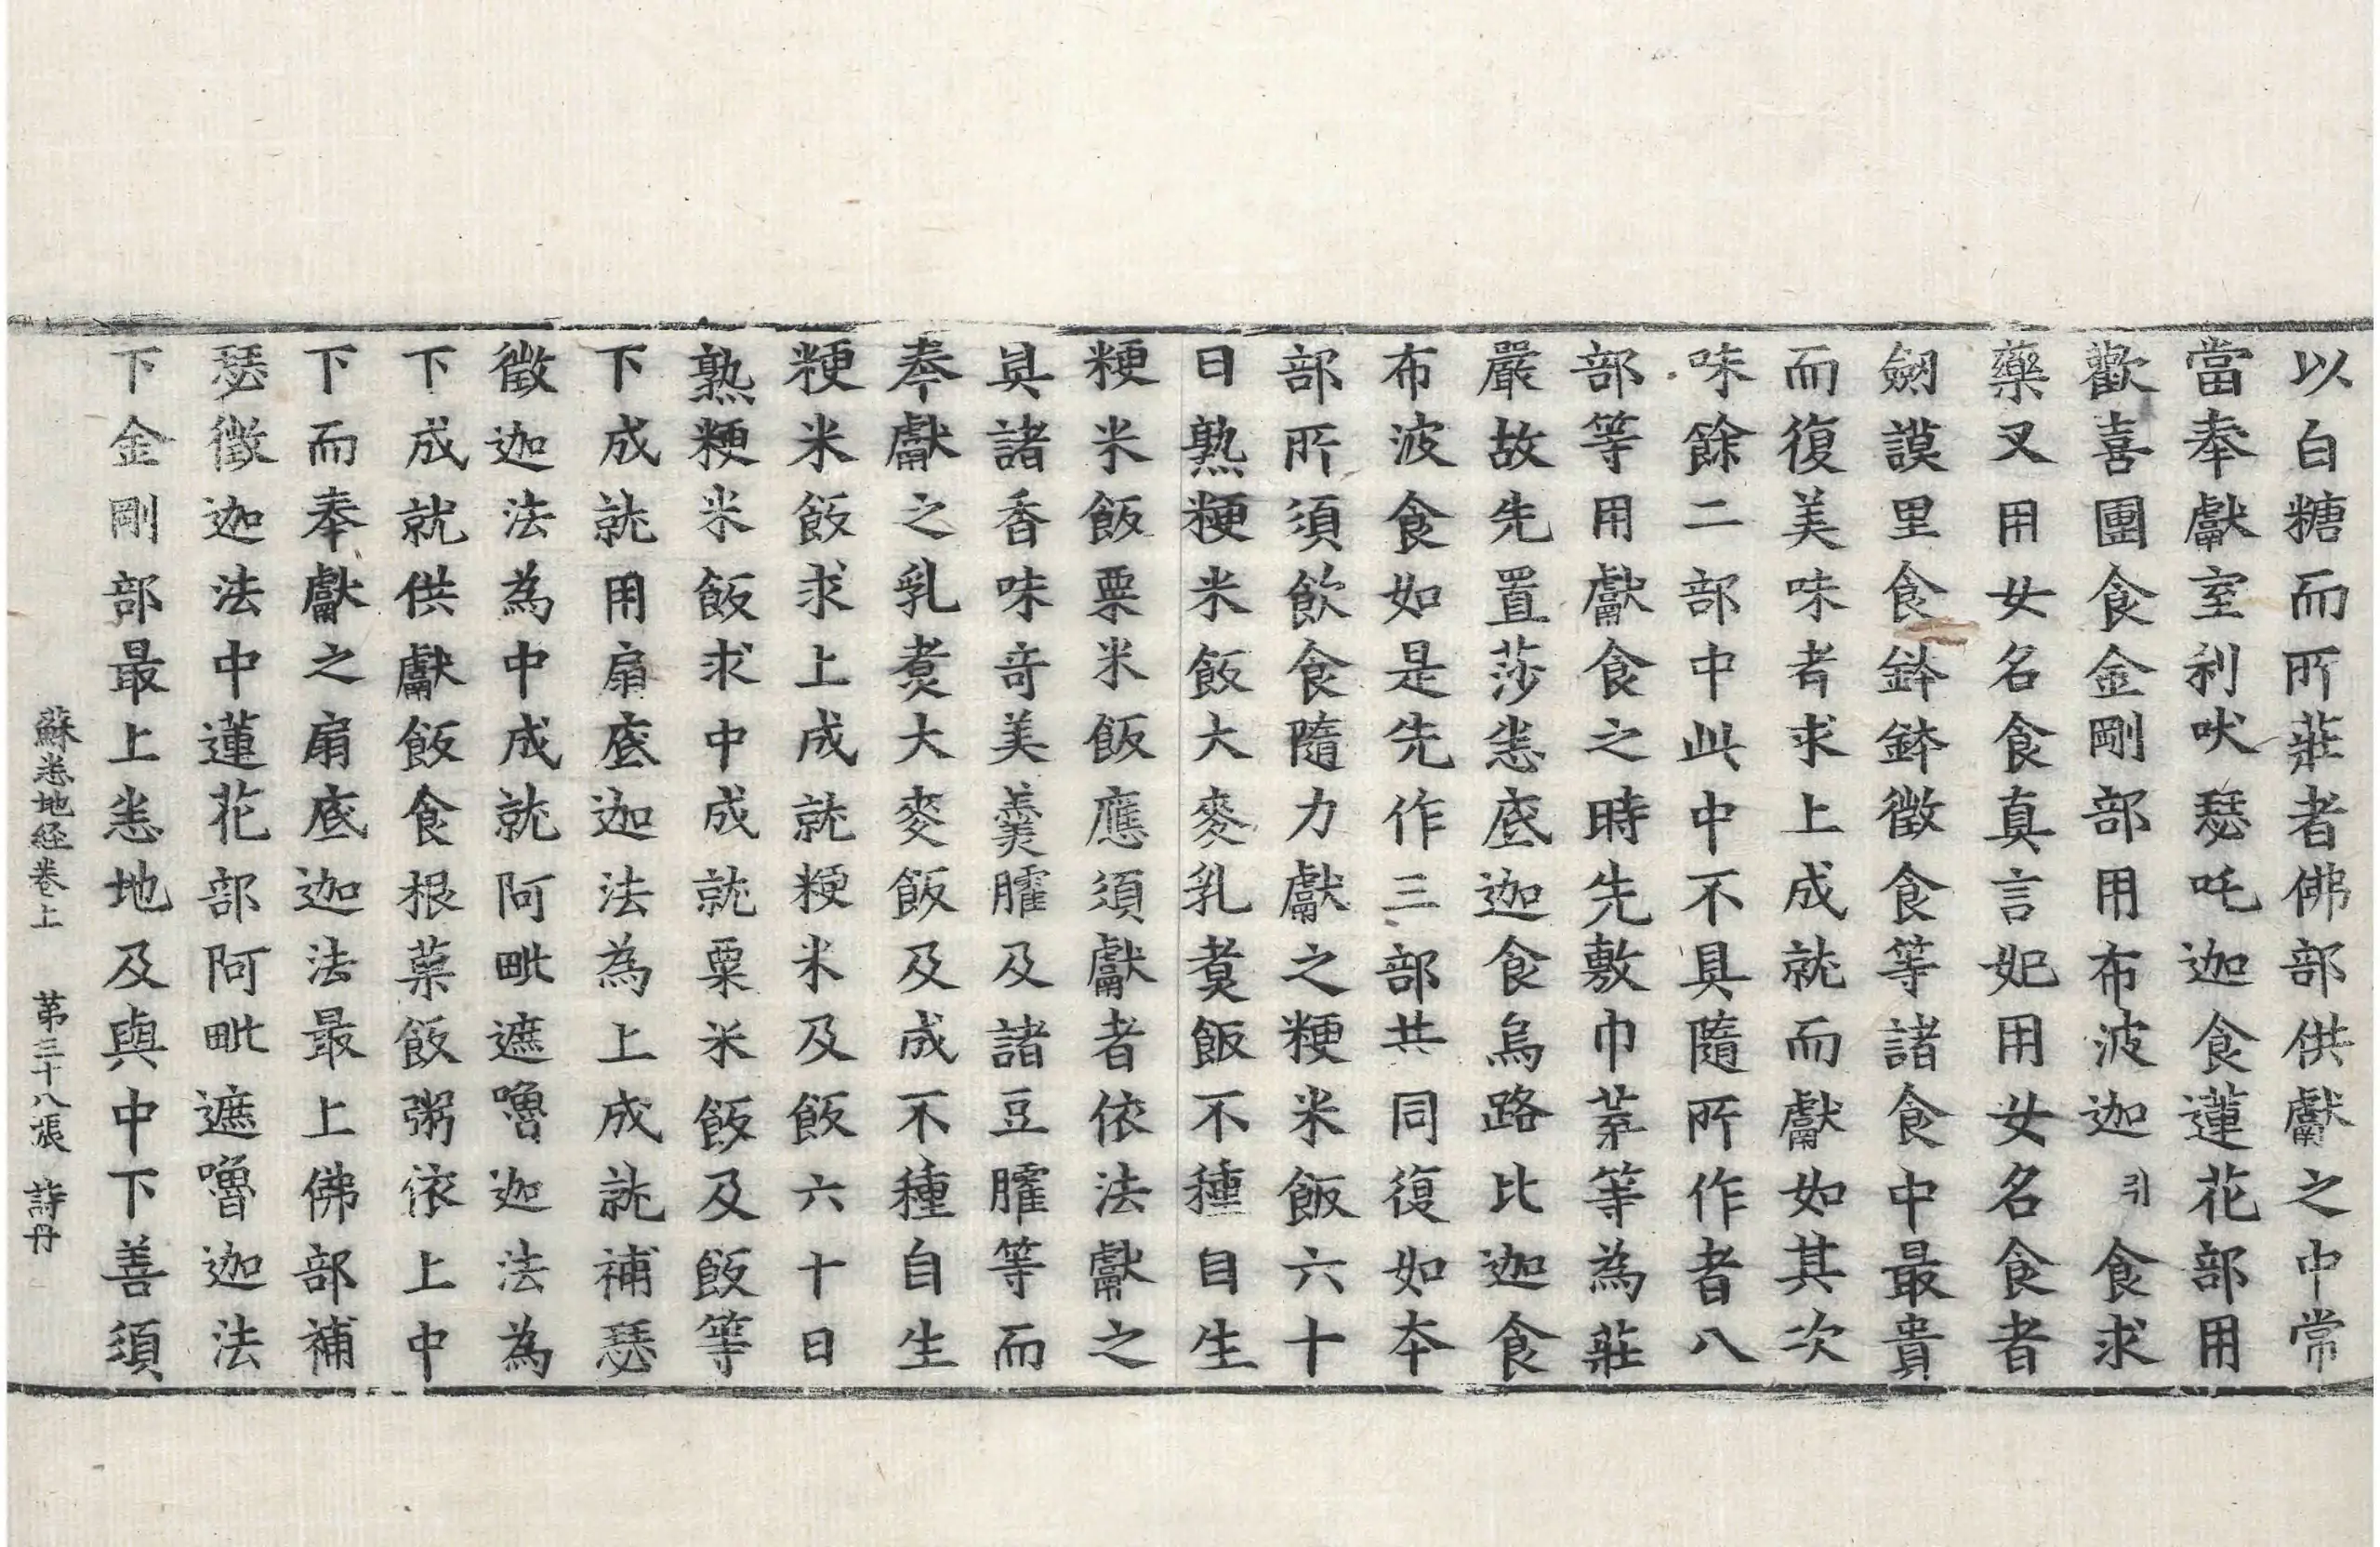 以白糖而所莊者佛部供獻之中常
當奉獻室利吠瑟吒迦食蓮花部用
歡喜團食金剛部用布波迦引食求
藥叉用女名食真言妃用女名食者
劒謨里食鉢鉢徵食等諸食中最貴
而復美味者求上成就而獻如其次
味餘二部中此中不具隨所作者八
部等用獻食之時先敷巾荼等為莊
嚴故先置莎悉底迦食烏路比迦食
布波食如是先作三部共同復如本
部所須飲食隨力獻之粳米飯六十
日熟粳米飯大麥乳煑飯不種自生
粳米飯粟米飯應須獻者依法獻之
具諸香味竒美羹臛及諸豆臛等而
奉獻之乳煑大麥飯及成不種自生
粳米飯求上成就粳米及飯六十日
熟粳米飯求中成就粟米飯及飯等
下成就用扇底迦法為上成就補瑟
徵迦法為中成就阿毗遮嚕迦法為
下成就供獻飯食根菓飯粥依上中
下而奉獻之扇底迦法最上佛部補
瑟徵迦法中蓮花部阿毗遮嚕迦法
下金剛部最上悉地及與中下善須
蘇悉地経卷上 第三十八張 詩丹